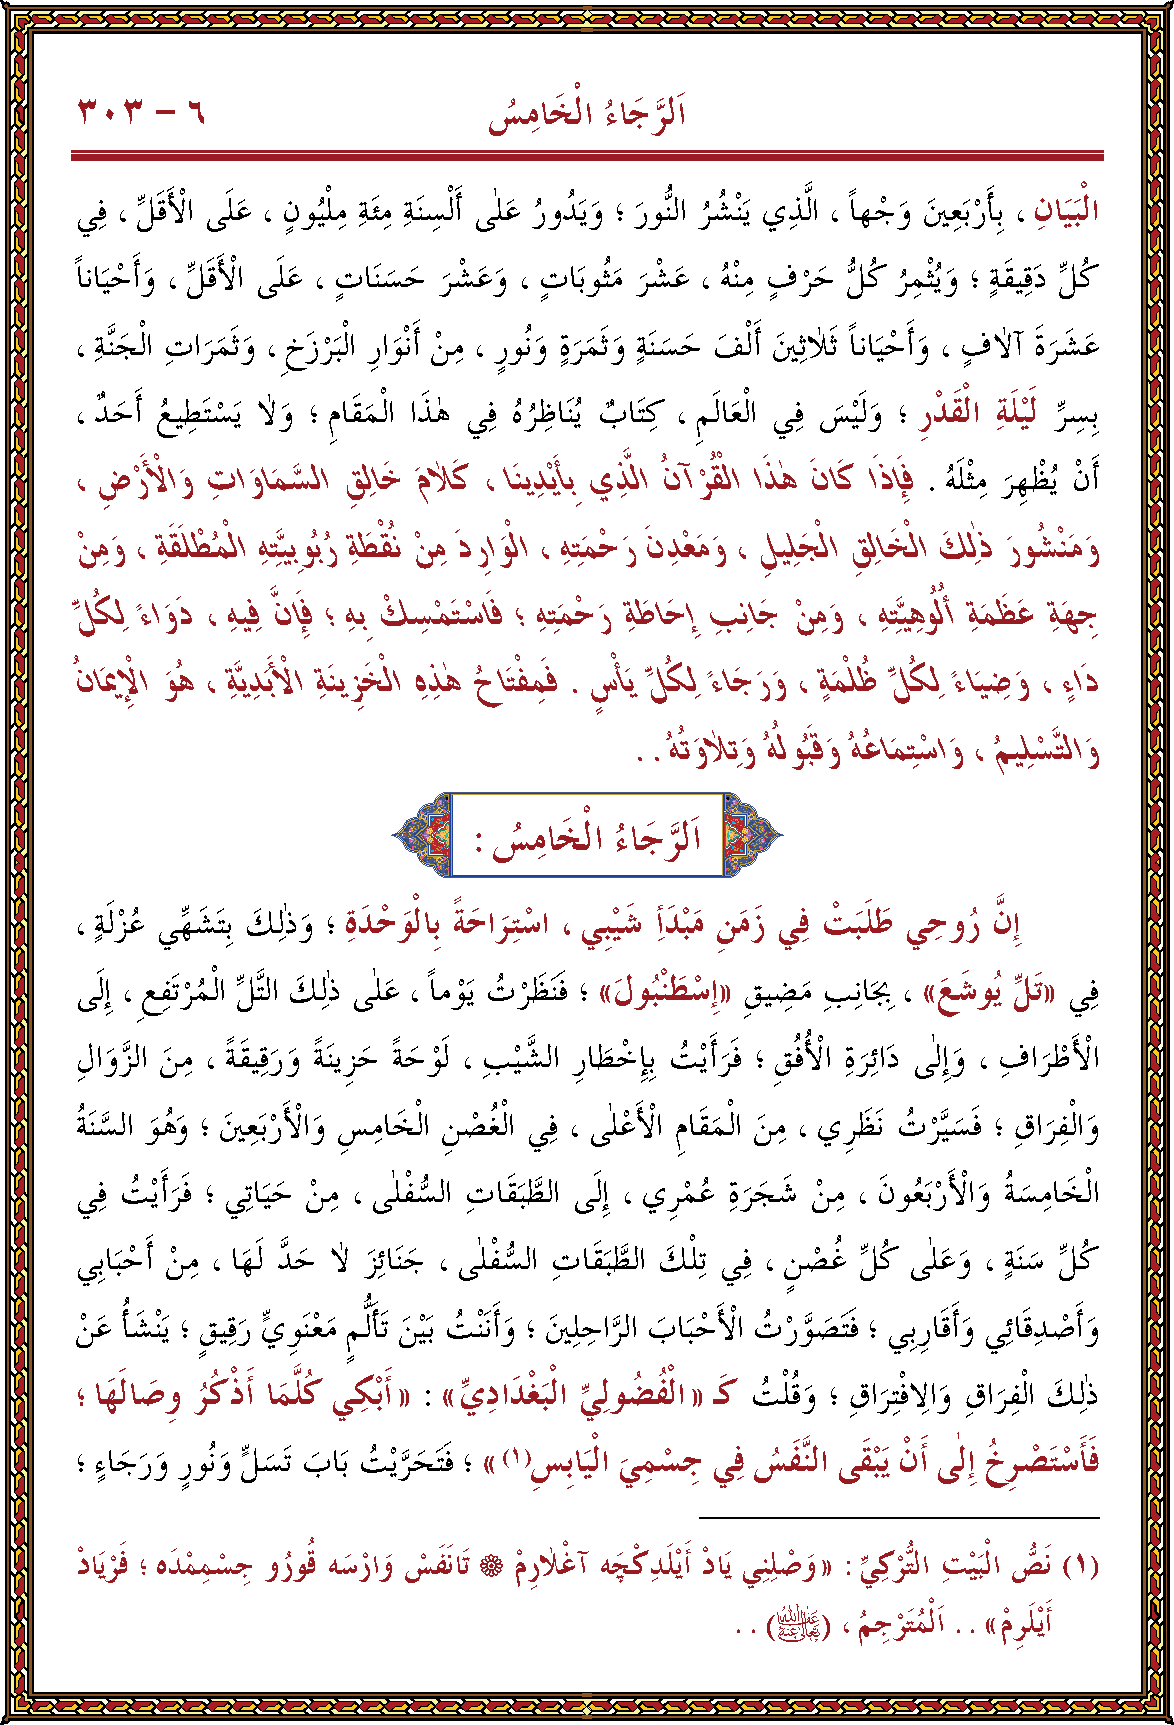 اَلرَّجَاءُ الْخَامِسُ ٦ - ٣٠٣
الْبَيَانِ ، بِأَرْبَعِينَ وَجْهاً ، الَّذِي يَنْشُرُ النُّورَ ؛ وَيَدُورُ عَلٰى أَلْسِنَةِ مِئَةِ مِلْيُونٍ ، عَلَى الْأَقَلِّ ، فِي
كُلِّ دَقِيقَةٍ ؛ وَيُثْمِرُ كُلُّ حَرْفٍ مِنْهُ ، عَشْرَ مَثُوبَاتٍ ، وَعَشْرَ حَسَنَاتٍ ، عَلَى الْأَقَلِّ ، وَأَحْيَاناً
عَشَرَةَ آلَافٍ ، وَأَحْيَاناً ثَلَاثِينَ أَلْفَ حَسَنَةٍ وَثَمَرَةٍ وَنُورٍ ، مِنْ أَنْوَارِ الْبَرْزَخِ ، وَثَمَرَاتِ الْجَنَّةِ ،
بِسِرِّ لَيْلَةِ الْقَدْرِ ؛ وَلَيْسَ فِي الْعَالَمِ ، كِتَابٌ يُنَاظِرُهُ فِي هٰذَا الْمَقَامِ ؛ وَلَا يَسْتَطِيعُ أَحَدٌ ،
أَنْ يُظْهِرَ مِثْلَهُ . فَإِذَا كَانَ هٰذَا الْقُرْآنُ الَّذِي بِأَيْدِينَا ، كَلَامَ خَالِقِ السَّمَاوَاتِ وَالْأَرْضِ ،
وَمَنْشُورَ ذٰلِكَ الْخَالِقِ الْجَلِيلِ ، وَمَعْدِنَ رَحْمَتِهِ ، الْوَارِدَ مِنْ نُقْطَةِ رُبُوبِيَّتِهِ الْمُطْلَقَةِ ، وَمِنْ
جِهَةِ عَظَمَةِ أُلُوهِيَّتِهِ ، وَمِنْ جَانِبِ إِحَاطَةِ رَحْمَتِهِ ؛ فَاسْتَمْسِكْ بِهِ ؛ فَإِنَّ فِيهِ ، دَوَاءً لِكُلِّ
دَاءٍ ، وَضِيَاءً لِكُلِّ ظُلْمَةٍ ، وَرَجَاءً لِكُلِّ يَأْسٍ . فَمِفْتَاحُ هٰذِهِ الْخَزِينَةِ الْأَبَدِيَّةِ ، هُوَ الْإِيمَانُ
وَالتَّسْلِيمُ ، وَاسْتِمَاعُهُ وَقَبُولُهُ وَتِلَاوَتُهُ . .
اَلرَّجَاءُ الْخَامِسُ :
إِنَّ رُوحِي طَلَبَتْ فِي زَمَنِ مَبْدَأِ شَيْبِي ، اسْتِرَاحَةً بِالْوَحْدَةِ ؛ وَذٰلِكَ بِتَشَهِّي عُزْلَةٍ ،
فِي «تَلِّ يُوشَعَ» ، بِجَانِبِ مَضِيقِ «إِسْطَنْبُولَ» ؛ فَنَظَرْتُ يَوْماً ، عَلٰى ذٰلِكَ التَّلِّ الْمُرْتَفِعِ ، إِلَى
الْأَطْرَافِ ، وَإِلٰى دَائِرَةِ الْأُفُقِ ؛ فَرَأَيْتُ بِإِخْطَارِ الشَّيْبِ ، لَوْحَةً حَزِينَةً وَرَقِيقَةً ، مِنَ الزَّوَالِ
وَالْفِرَاقِ ؛ فَسَيَّرْتُ نَظَرِي ، مِنَ الْمَقَامِ الْأَعْلٰى ، فِي الْغُصْنِ الْخَامِسِ وَالْأَرْبَعِينَ ؛ وَهُوَ السَّنَةُ
الْخَامِسَةُ وَالْأَرْبَعُونَ ، مِنْ شَجَرَةِ عُمْرِي ، إِلَى الطَّبَقَاتِ السُّفْلٰى ، مِنْ حَيَاتِي ؛ فَرَأَيْتُ فِي
كُلِّ سَنَةٍ ، وَعَلٰى كُلِّ غُصْنٍ ، فِي تِلْكَ الطَّبَقَاتِ السُّفْلٰى ، جَنَائِزَ لَا حَدَّ لَهَا ، مِنْ أَحْبَابِي
وَأَصْدِقَائِي وَأَقَارِبِي ؛ فَتَصَوَّرْتُ الْأَحْبَابَ الرَّاحِلِينَ ؛ وَأَنَنْتُ بَيْنَ تَأَلُّمٍ مَعْنَوِيٍّ رَقِيقٍ ؛ يَنْشَأُ عَنْ
ذٰلِكَ الْفِرَاقِ وَالِافْتِرَاقِ ؛ وَقُلْتُ كَـ «الْفُضُولِيِّ الْبَغْدَادِيِّ» : «أَبْكِي كُلَّمَا أَذْكُرُ وِصَالَهَا ؛
فَأَسْتَصْرِخُ إِلٰى أَنْ يَبْقَى النَّفَسُ فِي جِسْمِيَ الْيَابِسِ(١)» ؛ فَتَحَرَّيْتُ بَابَ تَسَلٍّ وَنُورٍ وَرَجَاءٍ ؛
(١) نَصُّ الْبَيْتِ التُّرْكِيِّ : «وَصْلِنِي يَادْ أَيْلَدِكْچَه آغْلَارِمْ ❁ تَانَفَسْ وَارْسَه قُورُو جِسْمِمْدَه ؛ فَرْيَادْ
أَيْلَرِمْ» . . اَلْمُتَرْجِمُ ، (عَفَا اللّٰهُ تَعَالٰى عَنْهُ) . .